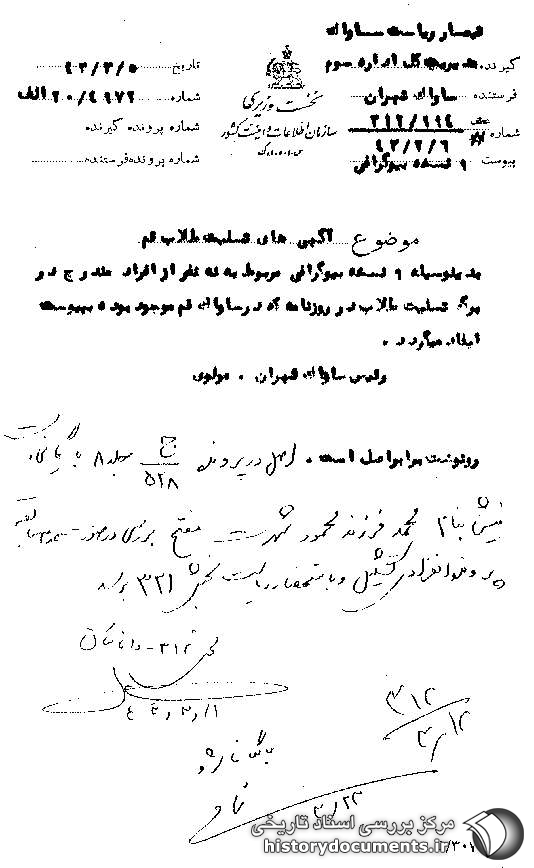 تیمسار ریاست ساواک
گیرنده مدیریت کل اداره سوم
فرستنده ساواک تهران
شماره ۳۱۲/۹۹۴
۴۳/۲/۶
پیوست ۹ نسخه بیوگرافی
نخست وزیری
سازمان اطلاعات و امنیت کشور
س.ا.و.ا.ک
تاریخ ۴۳/۳/۵
شماره ۲۰/۴۹۷۲ الف
شماره پرونده گیرنده
شماره پرونده فرستنده
موضوع آگهی های تسلیت طلاب قم
بدینوسیله ۹ نسخه بیوگرافی مربوط به نه نفر از افراد مندرج در
برگ تسلیت طلاب در روزنامه که در ساواک قم موجود بوده به پیوست
ایفاد میگردد.
رئیس ساواک تهران . مولوی
رونوشت برابر اصل است . اصل در پرونده ج/۵۲۸ جلد ۸ بایگانی است
فیش بنام محمد فرزند محمود شهرت مفتح بررسی در صورت سابقه
پرونده انفرادی تشکیل و باستحضار ریاست بخش ۳۲۱ برسد
۳۱۲
۳/۱۲
بایگانی شود
۳/۲۳
مرکز بررسی اسناد تاریخی
historydocuments.ir